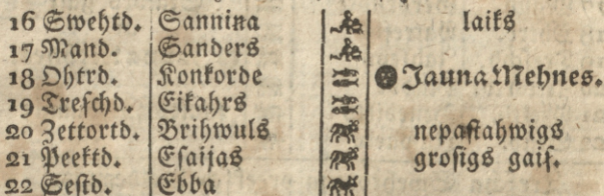 16 Swehtd. Sannina laiks
17 Mand. Sanders
18 Ohtrd. Konkorde Jauna Mehnes.
19 Treschd. Eikahrs
20 Zettortd. Brihwuls nepastahwigs
21 Peektd. Esaijas grosigs gais.
22 Sestd. Ebba